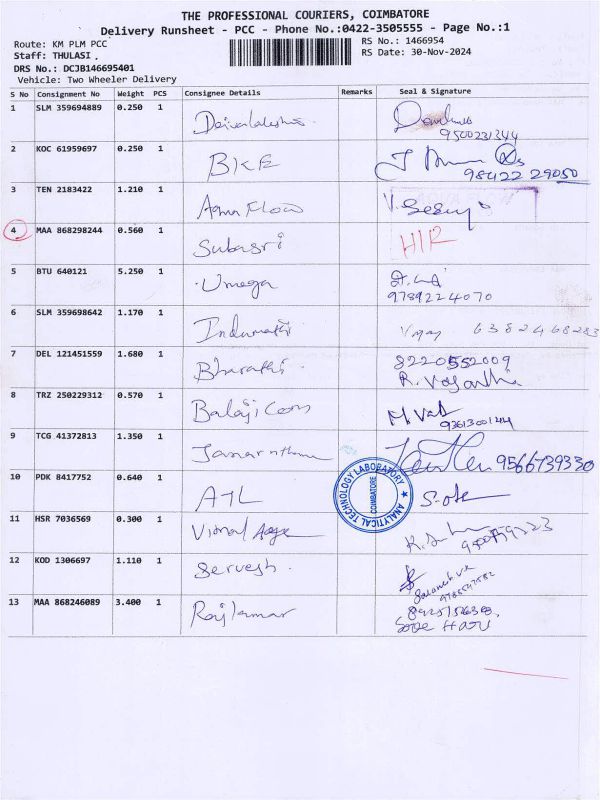 THE PROFESSIONAL COURIERS, COIMBATORE
Delivery Runsheet - PCC - Phone No.:0422-3505555 - Page No.:1
Route: KM PLM PCC
RS No.: 1466954
Staff: THULASI .
RS Date: 30-Nov-2024
DRS No.: DCJB146695401
Vehicle: Two Wheeler Delivery
S No Consignment No Weight PCS Consignee Details Remarks Seal & Signature
1 SLM 359694889 0.250 1
9500231344
2 KOC 61959697 0.250 1 BKE
98422 29050
3 TEN 2183422 1.210 1 Aqua Flow
4 MAA 868298244 0.560 1 Subasri
5 BTU 640121 5.250 1 Umega
9789224070
6 SLM 359698642 1.170 1 Indumathi Vijay 6382468283
7 DEL 121451559 1.680 1 Bharathi 8220552009
R. Vasantha
8 TRZ 250229312 0.570 1 Balaji Cons
9 TCG 41372813 1.350 1 9566739330
10 PDK 8417752 0.640 1 ATL
ANALYTICAL TECHNOLOGY LABORATORY
COIMBATORE
11 HSR 7036569 0.300 1
12 KOD 1306697 1.110 1 Servesh
13 MAA 868246089 3.400 1 Rajkumar